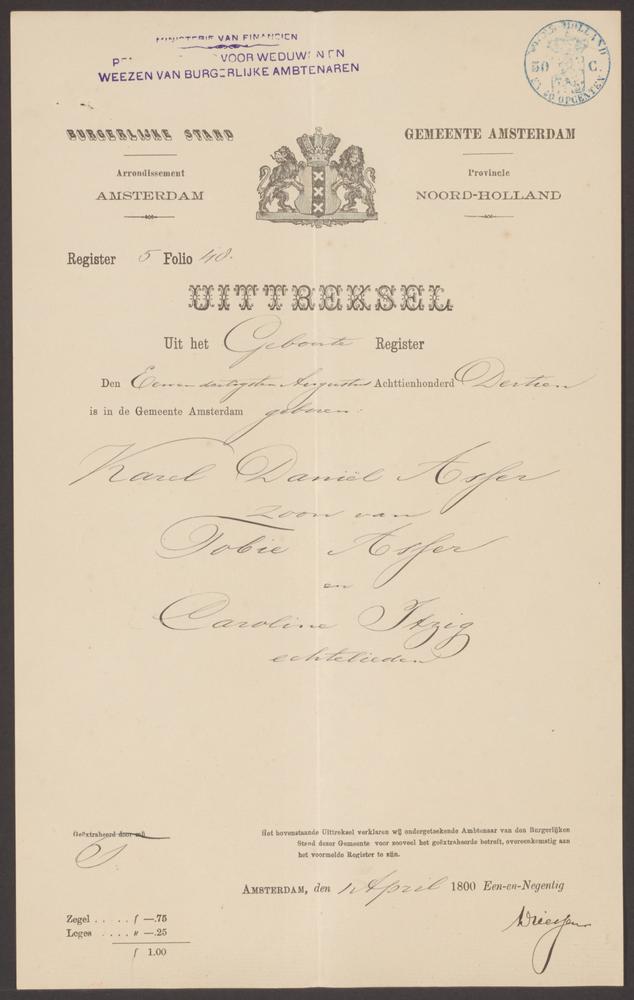 MINISTERIE VAN FINANCIEN
VOOR WEDUWEN EN
WEEZEN VAN BURGERLIJKE AMBTENAREN
NOORD-HOLLAND
50 C.
EN 50 OPCENTEN
BURGERLIJKE STAND
GEMEENTE AMSTERDAM
Arrondissement
Provincie
AMSTERDAM
NOORD-HOLLAND
Register 5 Folio 48.
UITTREKSEL
Uit het Geboorte Register
Den Eenendertigsten Augustus Achttienhonderd Dertien
is in de Gemeente Amsterdam geboren:
Karel Daniël Asser
zoon van
Tobie Asser
en
Caroline Itzig
echtelieden
Geëxtraheerd door mij
Het bovenstaande Uittreksel verklaren wij ondergeteekende Ambtenaar van den Burgerlijken
Stand dezer Gemeente voor zooveel het geëxtraheerde betreft, overeenkomstig aan
het voormelde Register te zijn.
AMSTERDAM, den 1 April 1800 Een-en-Negentig
Zegel . . . . f —.75
Leges . . . . „ —.25
f 1.00